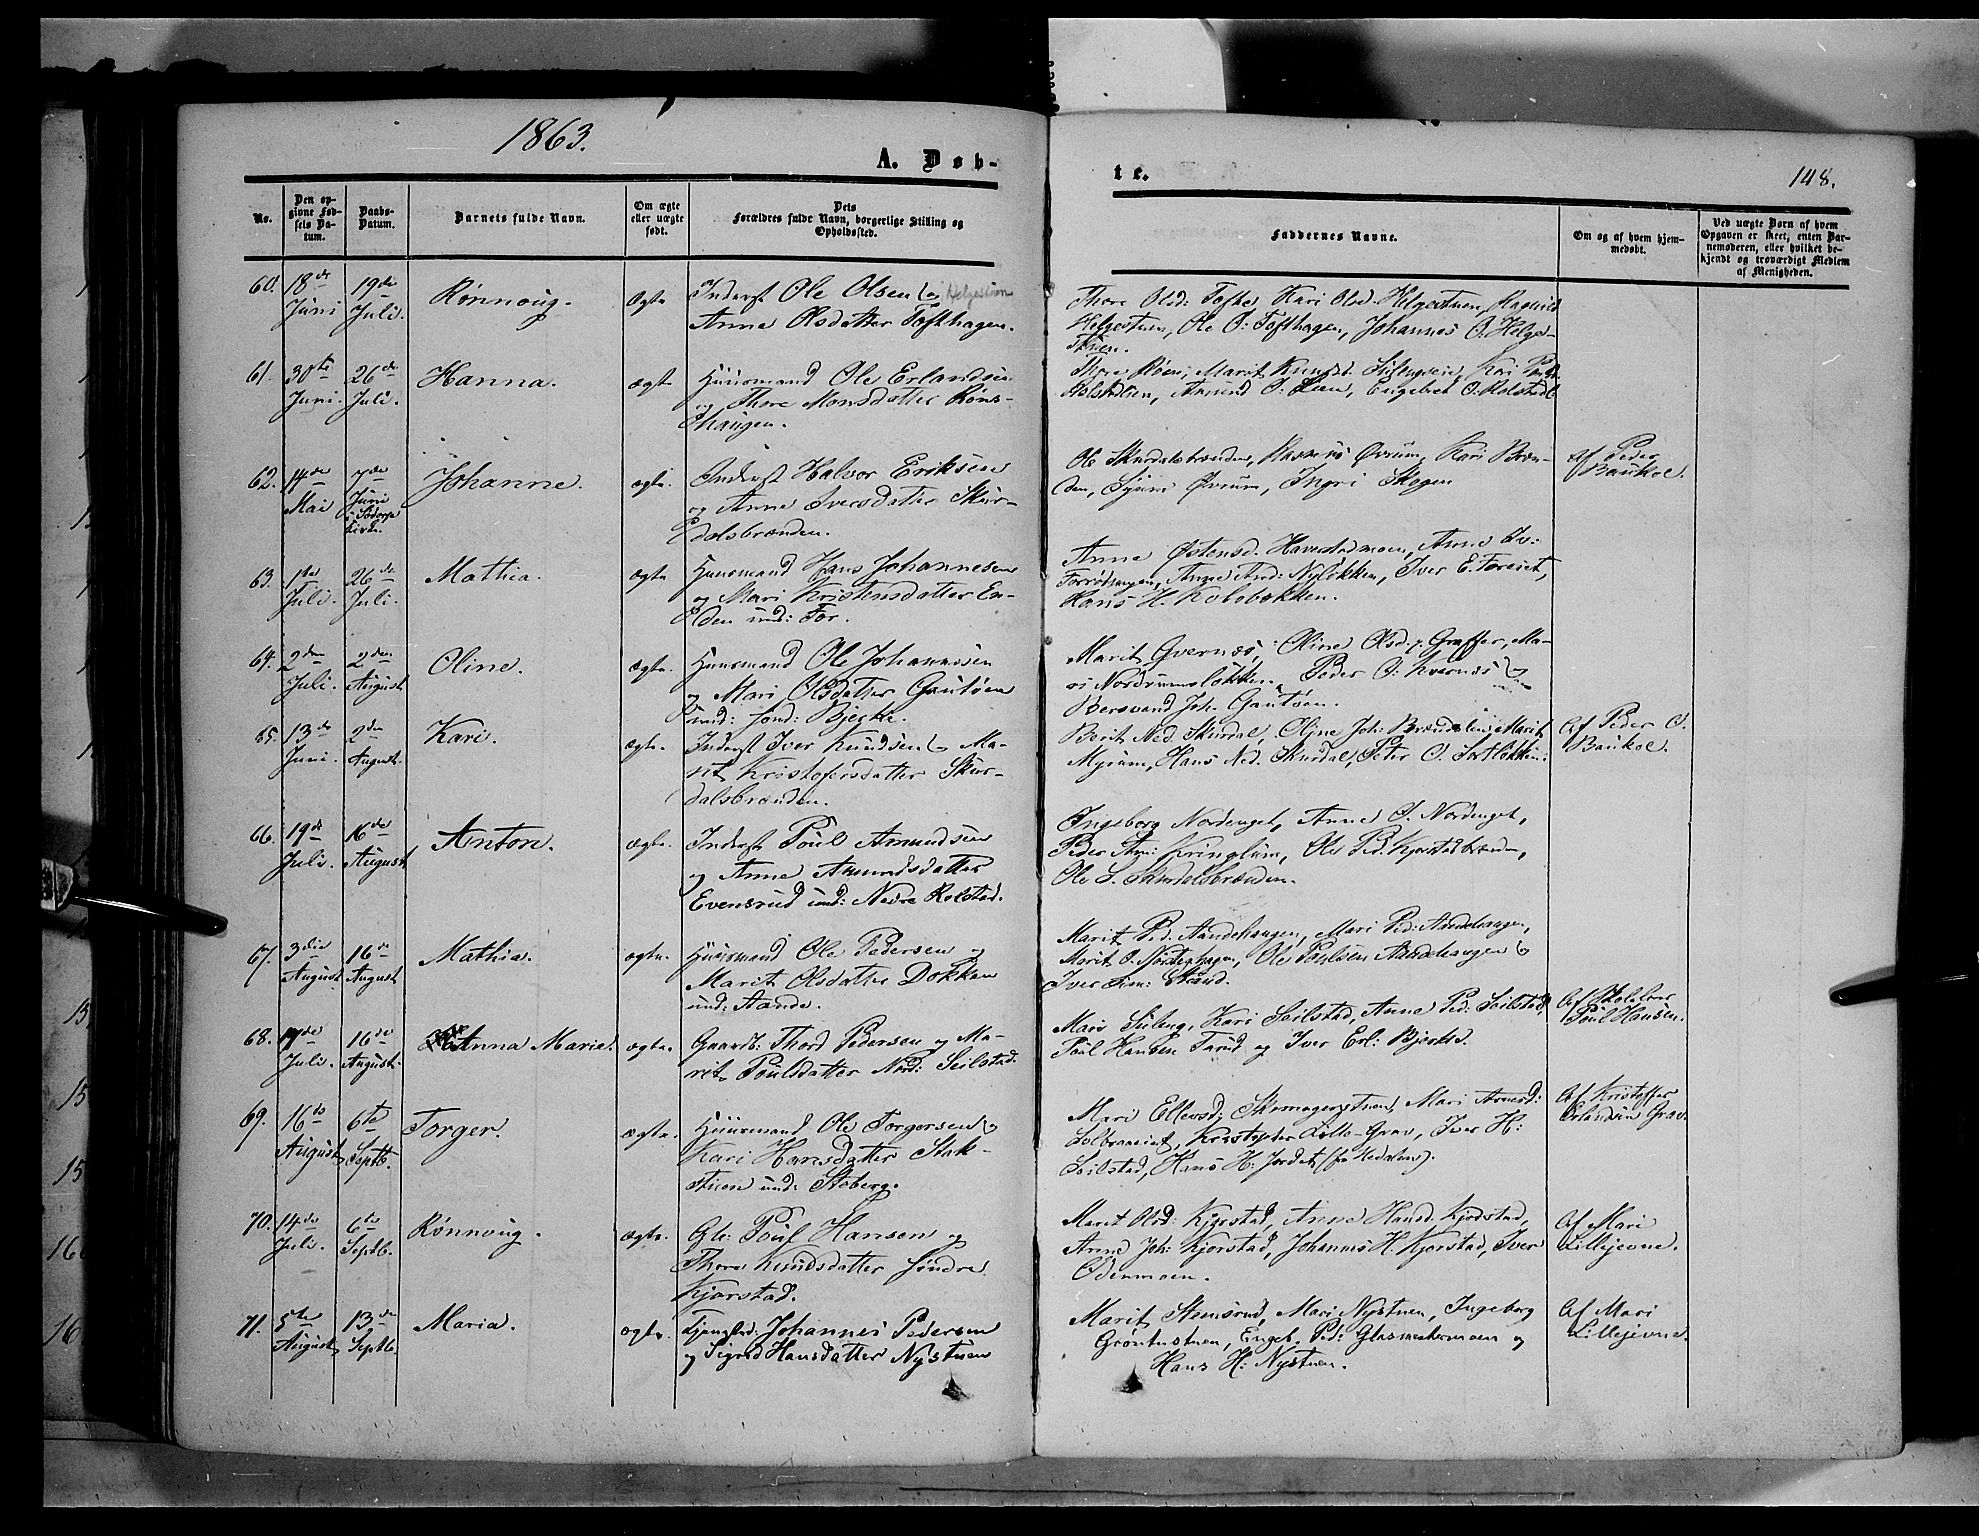 1863.
A. Døb-
te.
148.
No.
Den op-
givne Fød-
sels Da-
tum.
Daabs-
Datum.
Barnets fulde Navn.
Om ægte
eller uægte
født.
Dets
Forældres fulde Navn, borgerlige Stilling og
Opholdssted.
Faddernes Navne.
Om og af hvem hjem-
medøbt.
Ved uægte Børn af hvem
Opgaven er skeet, enten Bar-
nemoderen, eller hvilket be-
kjendt og troværdigt Medlem
af Menigheden.
60. 18de Juni
19de Juli.
Rønnoug.
ægte
Inderst Ole Olsen og Helgestuen
Anne Olsdatter Tofthagen.
Thore Olsd: Tofte, Kari Olsd. Helgestuen, Ragnild
Helgestuen, Ole O: Tofthagen, Johannes O. Helge-
stuen.
61. 30te Juni.
26de Juli.
Hanna.
ægte
Huusmand Ole Erlandsen
og Thore Monsdatter Røns-
haugen.
Thore Røen, Marit Knudsd. Kari
Amund O: Engebret O. Rolstad
62. 14de Mai
7de Juni
i Sødorp
Kirke.
Johanne.
ægte.
Inderst Halvor Eriksen
og Anne Iversdatter Skur-
dalsbrænden.
Ole Skurdalsbrænden, Rasmus Øvrum, Kari Bræn-
den, Syver Øvrum, Ingri Skogen
Af Peder
Baukol.
63. 1ste Juli.
26de Juli.
Mathea.
ægte
Huusmand Hans Johannesen
og Mari Kristensdatter En-
den und: For.
Anne Østensd. Havrestadmoen, Anne Iv:
Anne And: Nyløkken, Iver E. Foreiet,
Hans H. Kolobækken.
64. 2den Juli.
2den August
Oline.
ægte.
Huusmand Ole Johannesen
og Mari Olsdatter Gautøen
und: Sønd: Bjerke.
Marit Qvernæs, Oline Olsd. Græffer, Ma-
ri Nordrumsløkken, Peder O: Kvernæs og
Bersvend Joh. Gautøen.
65. 13de Juni.
2den August.
Kari.
ægte.
Inderst Iver Knudsen og Ma-
rit Kristofersdatter Skur-
dalsbrænden.
Berit Ned. Skurdal, Oline Joh: Brændelien, Marit
Myrum, Hans Ned. Skurdal, Peter O. Sortløkken.
Af Peder O.
Baukol.
66. 19de Juli.
16de August
Anton.
ægte.
Inderst Poul Amundsen
og Anne Amundsdatter
Evensrud und: Nedre Rolstad.
Ingeborg Nordenget, Anne O. Nordenget,
Peder Am: Kringlum, Ole Ped. Kjorstadbrænden,
Ole S. Skurdalsbrænden.
67. 3die August
16de August
Mathea.
ægte.
Huusmand Ole Pedersen og
Marit Olsdatter Dokken
und: Aande.
Marit Ped. Aandehaugen, Mari Ped: Aandehaugen,
Marit O. Ole Poulsen Aandehaugen og
Iver Sim: Strand.
68. Juli.
16de August.
Anna Marie.
ægte.
Gaardb: Thord Pedersen og Ma-
rit Poulsdatter Nord: Seilstad.
Mari Kari Seilstad, Anne Ped: Seilstad,
Poul Hansen Tarud og Iver Erl: Bjerke.
Af Skolelærer
Poul Hansen.
69. 16de August
6te Septb.
Torger.
ægte.
Huusmand Ole Torgersen og
Kari Hansdatter Stak-
stuen und: Steberg.
Mari Ellevsd: Skomagerstuen, Mari Arnesd:
Solbraaeiet, Kristopher Lille-Grav, Iver H:
Seilstad, Hans H: Jordet (fra Hedalens).
Af Kristoffer
Erlandsen Grav.
70. 14de Juli.
6te Septb.
Rønnoug.
ægte.
Gbr: Poul Hansen og
Thore Knudsdatter Søndre
Kjorstad.
Marit Olsd: Kjorstad, Anne Hansd. Kjorstad,
Anne Joh: Kjorstad, Johannes H. Kjorstad, Iver
Odenmoen.
Af Mari
Lillejevne.
71. 5te August
13de Septb.
Maria.
ægte.
Johannes Pedersen
og Sigrid Hansdatter Nystuen
Marit Stemsrud, Mari Nystuen, Ingeborg
Grøntustuen, Engeb. Ped: Glasmestermoen og
Hans H: Nystuen.
Af Mari
Lillejevne.